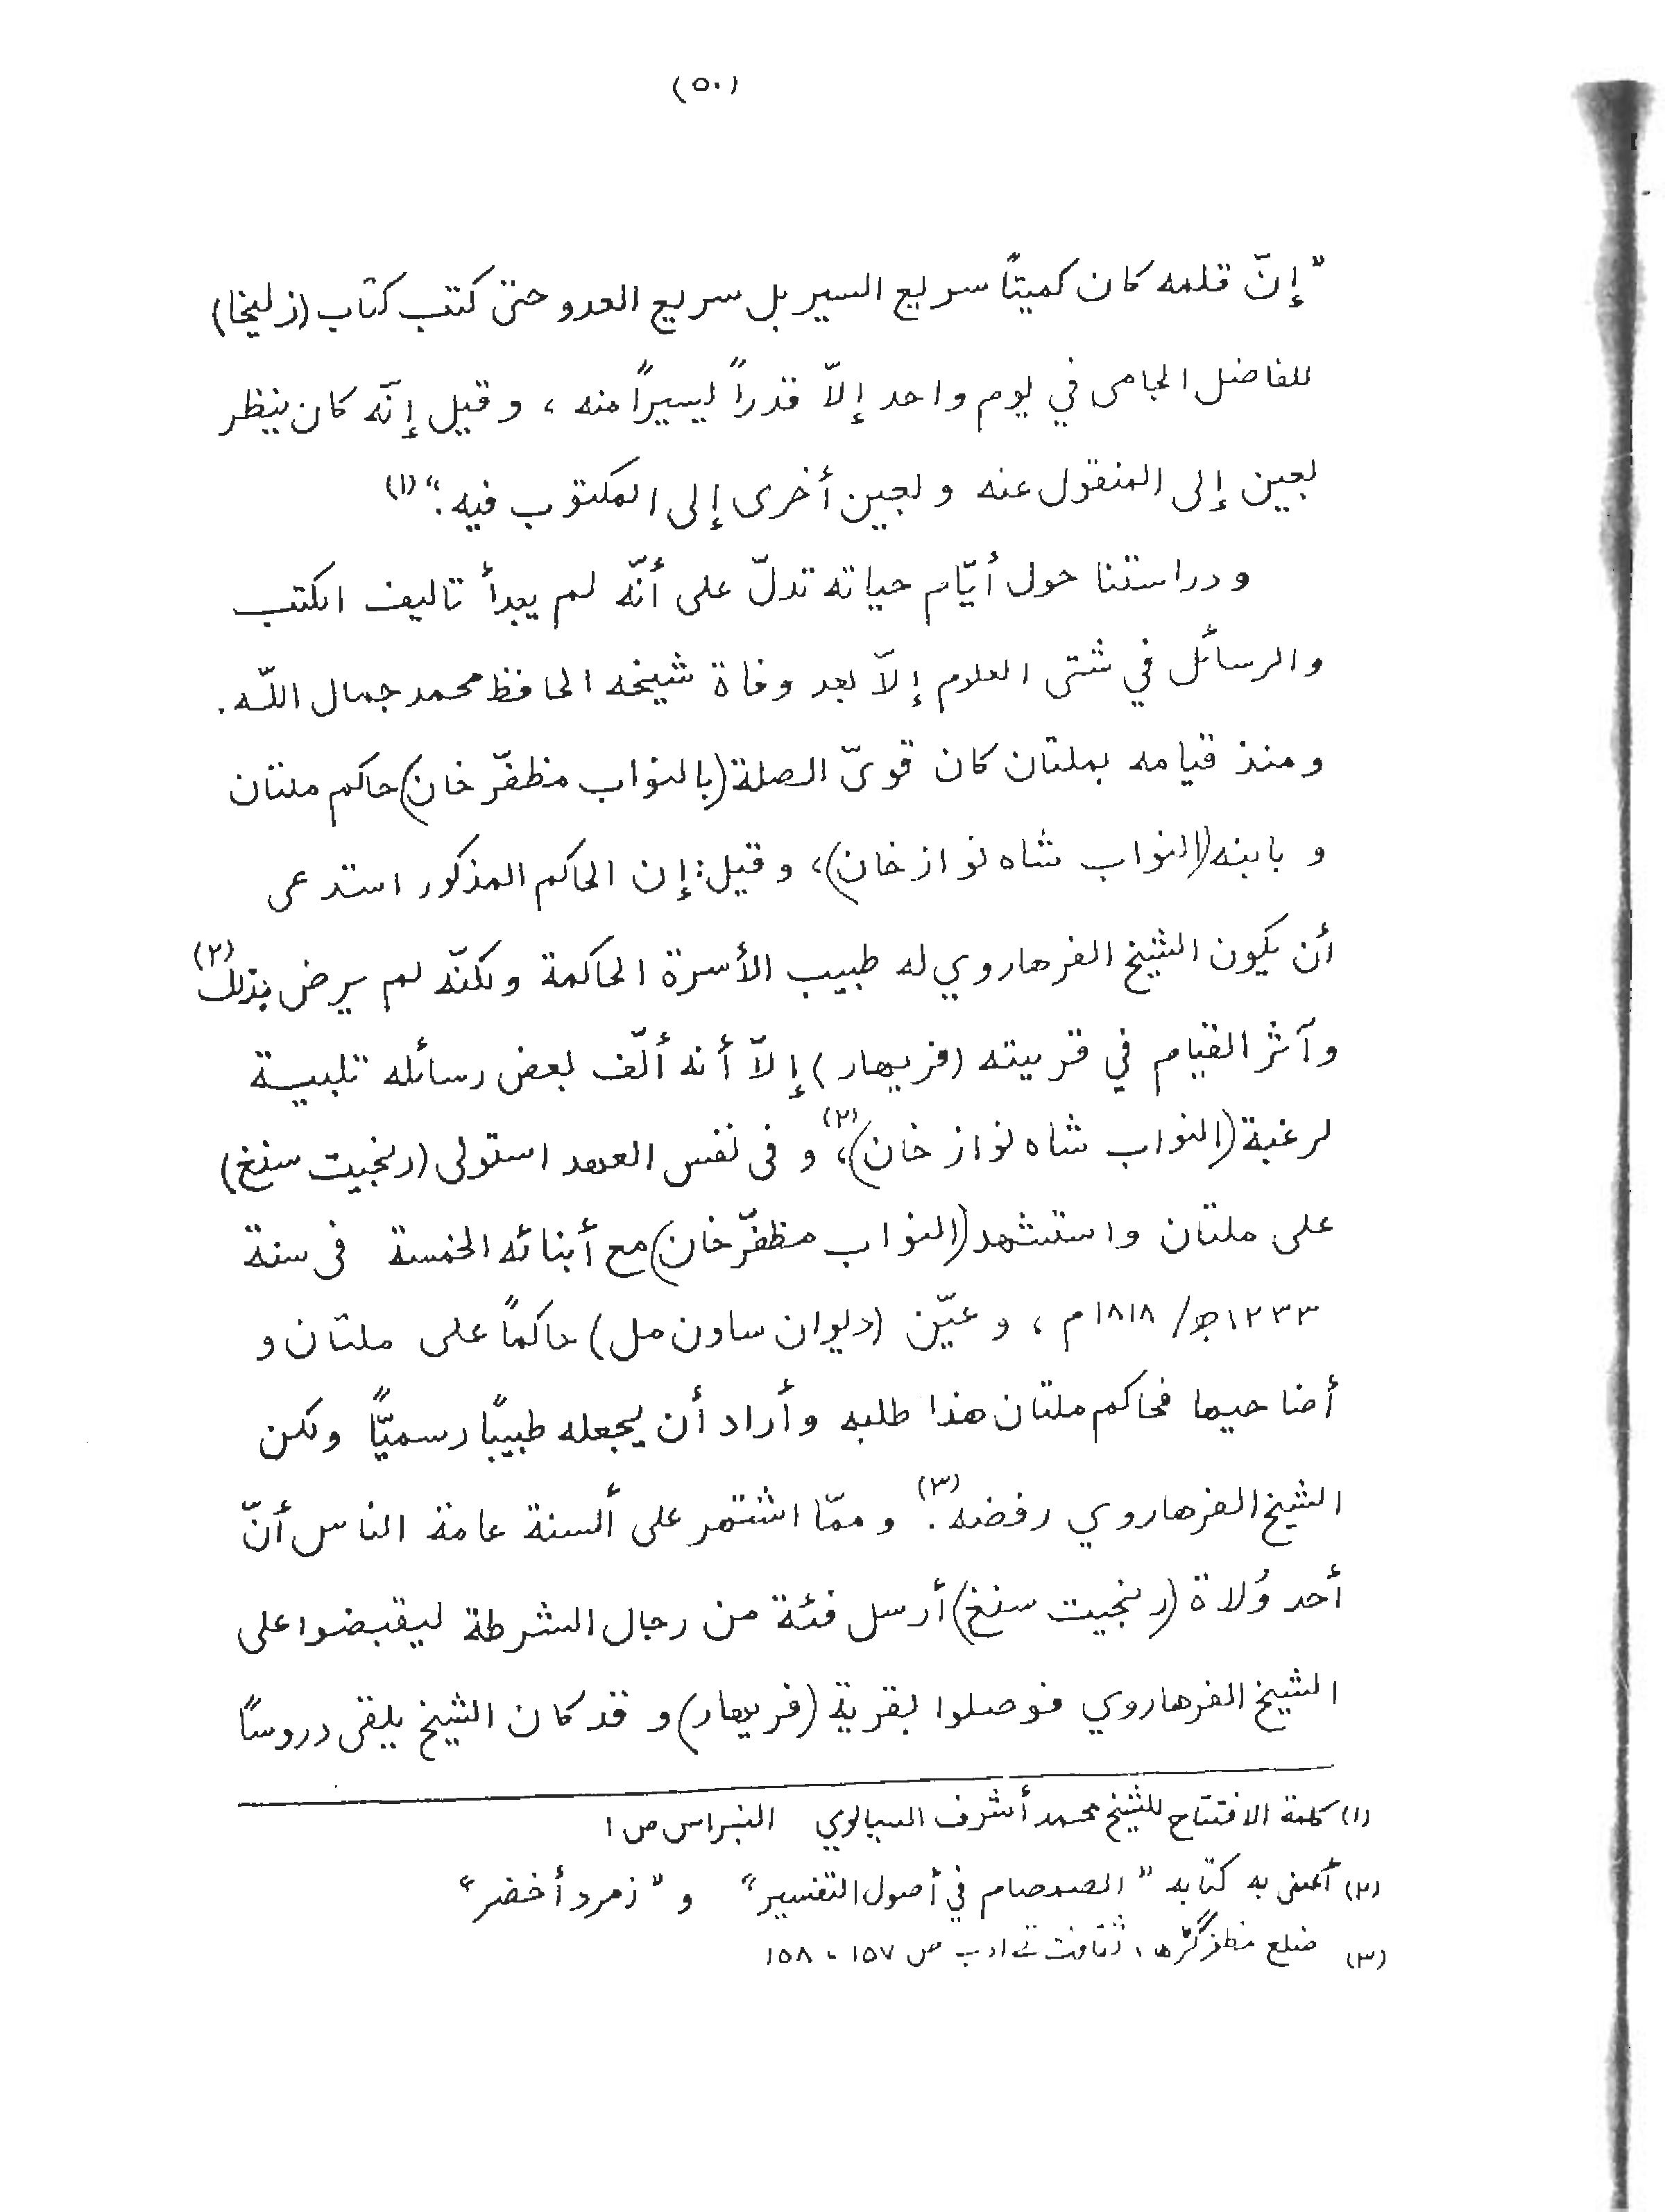 (٥٠)
"إنّ قلمه كان كميتاً سريع السير بل سريع العدو حتى كتب كتاب (زليخا)
للفاضل الجامى في يوم واحد إلاّ قدراً يسيراً منه ، وقيل إنّه كان ينظر
بعين إلى المنقول عنه وبعين أخرى إلى المكتوب فيه." (١)
ودراستنا حول أيّام حياته تدلّ على أنّه لم يبدأ تاليف الكتب
والرسائل في شتى العلوم إلاّ بعد وفاة شيخه الحافظ محمد جمال اللّه .
ومنذ قيامه بملتان كان قوىّ الصلة (بالنواب مظفّر خان) حاكم ملتان
و بابنه (النواب شاه نواز خان)، وقيل: إن الحاكم المذكور استدعى
أن يكون الشيخ الفرهاروي له طبيب الأسرة الحاكمة ولكنّه لم يرض بذلك (٢)
وآثر القيام في قريته (فريهار) إلاّ أنه ألّف بعض رسائله تلبية
لرغبة (النواب شاه نواز خان)، (٢) و فى نفس العهد استولى (رنجيت سنغ)
على ملتان واستشهد (النواب مظفّر خان) مع أبنائه الخمسة فى سنة
١٢٣٣ﻫ / ١٨١٨م ، و عيّن (ديوان ساون مل) حاكماً على ملتان و
أضاحيها فحاكم ملتان هذا طلبه وأراد أن يجعله طبيبًا رسميًّا ولكن
الشيخ الفرهاروي رفضه. (٣) وممّا اشتهر على ألسنة عامة الناس أنّ
أحد وُلاة (رنجيت سنغ) أرسل فئة من رجال الشرطة ليقبضوا على
الشيخ الفرهاروي فوصلوا بقرية (فريهار) و قد كان الشيخ يلقى دروساً
(١) كلمة الافتتاح للشيخ محمد أشرف السيالوي النبراس ص ١
(٢) أعنى به كتابه "الصمصام في أصول التفسير" و "زمرد أخضر"
(٣) ضلع مظفر گڑھ، ثقافت تے ادب ص ١٥٧ - ١٥٨